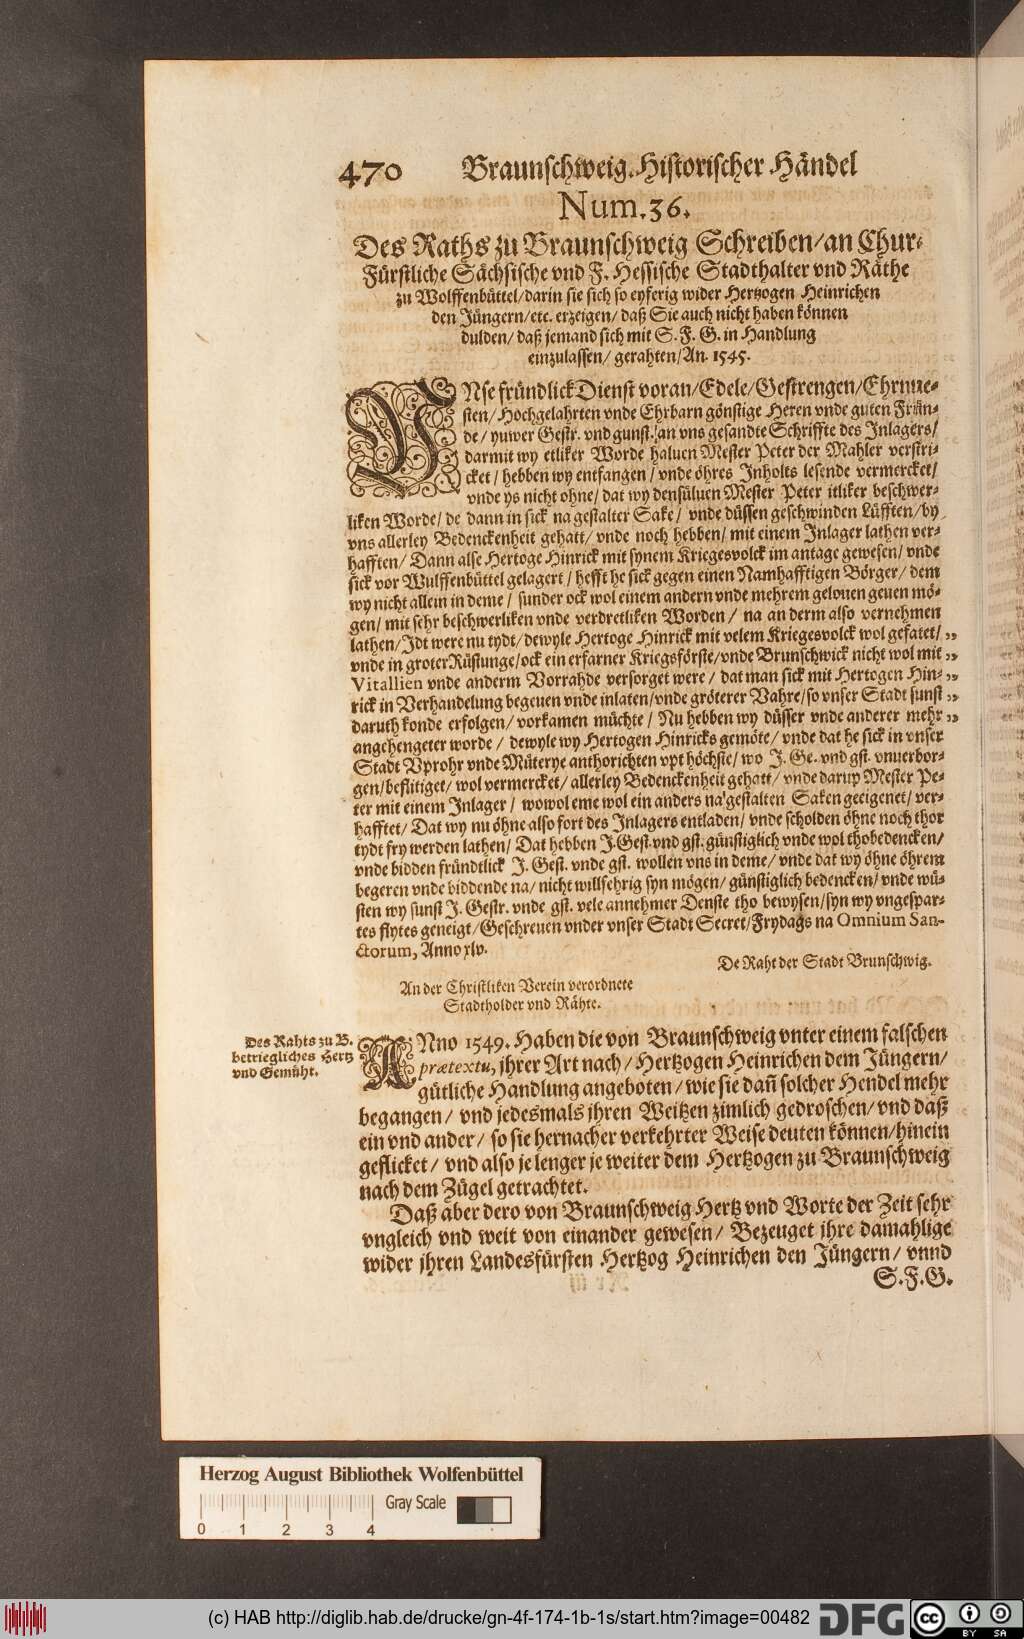 470 Braunschweig. Historischer Händel
Num. 36.
Des Raths zu Braunschweig Schreiben/ an Chur-
Fürstliche Sächsische vnd F. Hessische Stadthalter vnd Räthe
zu Wolffenbüttel/ darin sie sich so eyferig wider Hertzogen Heinrichen
den Jüngern/ etc. erzeigen/ daß Sie auch nicht haben können
dulden/ daß jemand sich mit S. F. G. in Handlung
einzulassen/ gerahten/ An. 1545.
VNse fründlick Dienst voran/ Edele/ Gestrengen/ Ehrnue-
sten/ Hochgelahrten vnde Ehrbarn gönstige Heren vnde guten Frün-
de/ yuwer Gestr. vnd gunst. an vns gesandte Schriffte des Inlagers/
darmit wy etliker Worde haluen Mester Peter der Mahler verstri-
cket/ hebben wy entfangen/ vnde öhres Inholts lesende vermercket/
vnde ys nicht ohne/ dat wy densüluen Mester Peter itliker beschwer-
liken Worde/ de dann in sick na gestalter Sake/ vnde düssen geschwinden Lüfften/ by
vns allerley Bedenckenheit gehatt/ vnde noch hebben/ mit einem Inlager lathen ver-
hafften/ Dann alse Hertoge Hinrick mit synem Kriegesvolck im antage gewesen/ vnde
sick vor Wulffenbüttel gelagert/ hefft he sick gegen einen Namhafftigen Börger/ dem
wy nicht allein in deme/ sunder ock wol einem andern vnde mehrem gelouen geuen mö-
gen/ mit sehr beschwerliken vnde verdretliken Worden/ na an derm also vernehmen
lathen/ Idt were nu tydt/ dewyle Hertoge Hinrick mit velem Kriegesvolck wol gefatet/ „
vnde in groter Rüstunge/ ock ein erfarner Kriegsförste/ vnde Brunschwick nicht wol mit „
Vitallien vnde anderm Vorrahde versorget were/ dat man sick mit Hertogen Hin- „
rick in Verhandelung begeuen vnde inlaten/ vnde gröterer Vahre/ so vnser Stadt sunst „
daruth konde erfolgen/ vorkamen müchte/ Nu hebben wy düsser vnde anderer mehr „
angehengeter worde/ dewyle wy Hertogen Hinricks gemöte/ vnde dat he sick in vnser
Stadt Vprohr vnde Müterye anthorichten vpt höchste/ wo J. Ge. vnd gst. vnuerbor-
gen/ beflitiget/ wol vermercket/ allerley Bedenckenheit gehatt/ vnde darup Mester Pe-
ter mit einem Inlager/ wowol eme wol ein anders na gestalten Saken geeigenet/ ver-
hafftet/ Dat wy nu öhne also fort des Inlagers entladen/ vnde scholden öhne noch thor
tydt fry werden lathen/ Dat hebben J. Gest. vnd gst. günstiglich vnde wol thobedencken/
vnde bidden fründtlick J. Gest. vnde gst. wollen vns in deme/ vnde dat wy öhne öhrem
begeren vnde biddende na/ nicht willfehrig syn mögen/ günstiglich bedencken/ vnde wü-
sten wy sunst J. Gestr. vnde gst. vele annehmer Denste tho bewysen/ syn wy vngespar-
tes flytes geneigt/ Geschreuen vnder vnser Stadt Secret/ Frydags na Omnium San-
ctorum, Anno xlv.
De Raht der Stadt Brunschwig.
An der Christliken Verein verordnete
Stadtholder vnd Rähte.
Des Rahts zu B.
betriegliches Hertz
vnd Gemüht.
ANno 1549. Haben die von Braunschweig vnter einem falschen
prætextu, jhrer Art nach/ Hertzogen Heinrichen dem Jüngern/
gütliche Handlung angeboten/ wie sie dañ solcher Hendel mehr
begangen/ vnd jedesmals jhren Weitzen zimlich gedroschen/ vnd daß
ein vnd ander/ so sie hernacher verkehrter Weise deuten können/ hinein
geflicket/ vnd also je lenger je weiter dem Hertzogen zu Braunschweig
nach dem Zügel getrachtet.
Daß aber dero von Braunschweig Hertz vnd Worte der Zeit sehr
vngleich vnd weit von einander gewesen/ Bezeuget ihre damahlige
wider jhren Landesfürsten Hertzog Heinrichen den Jüngern/ vnnd
S. F. G.
Herzog August Bibliothek Wolfenbüttel
Gray Scale
0 1 2 3 4
(c) HAB http://diglib.hab.de/drucke/gn-4f-174-1b-1s/start.htm?image=00482 DFG cc BY SA